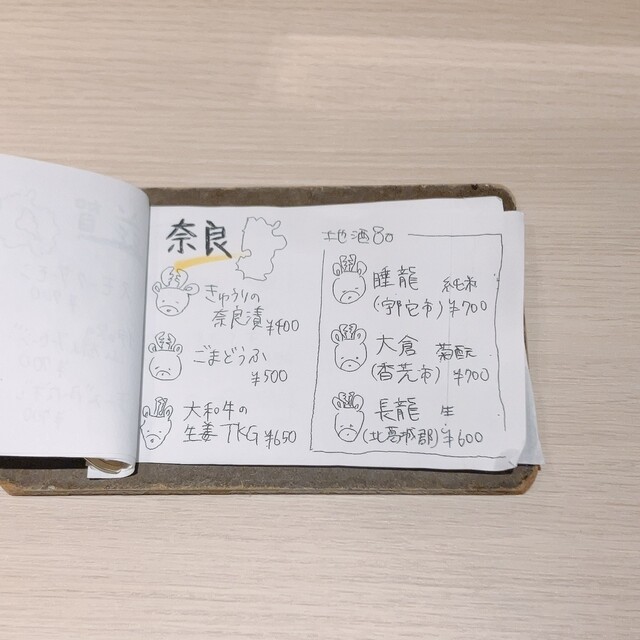 奈良
きゅうりの
奈良漬 ¥400
ごまどうふ
¥500
大和牛の
生姜TKG ¥650
地酒80
睡龍 純米
(宇陀市) ¥700
大倉
(香芝市) ¥700
長龍 生
(北葛城郡) ¥600